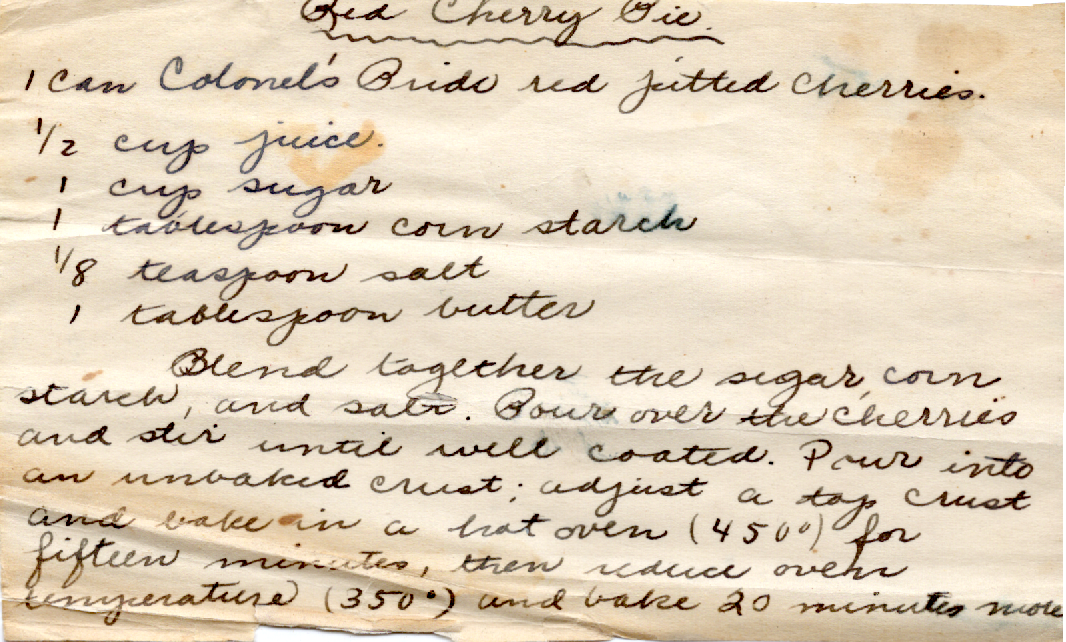 Red Cherry Pie.
1 can Colonel's Pride red pitted cherries.
1/2 cup juice.
1 cup sugar
1 tablespoon corn starch
1/8 teaspoon salt
1 tablespoon butter
Blend together the sugar, corn
starch, and salt. Pour over the cherries
and stir until well coated. Pour into
an unbaked crust; adjust a top crust
and bake in a hot oven (450°) for
fifteen minutes, then reduce oven
temperature (350°) and bake 20 minutes more